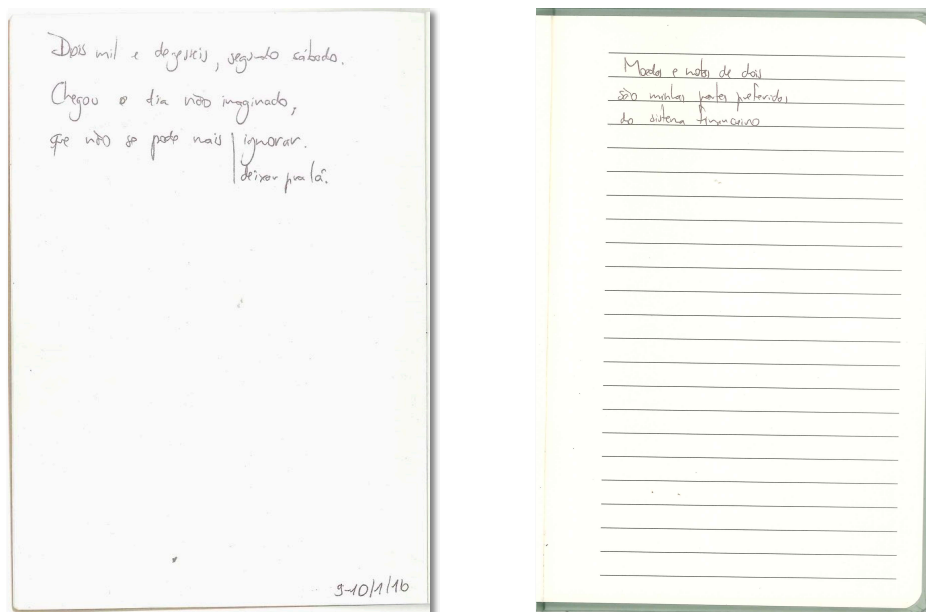 Dois mil e dezesseis, segundo sábado.
Chegou o dia não imaginado,
que não se pode mais ignorar.
deixar pra lá.
9-10/1/16
Moedas e notas de dois
são minhas partes preferidas
do sistema financeiro